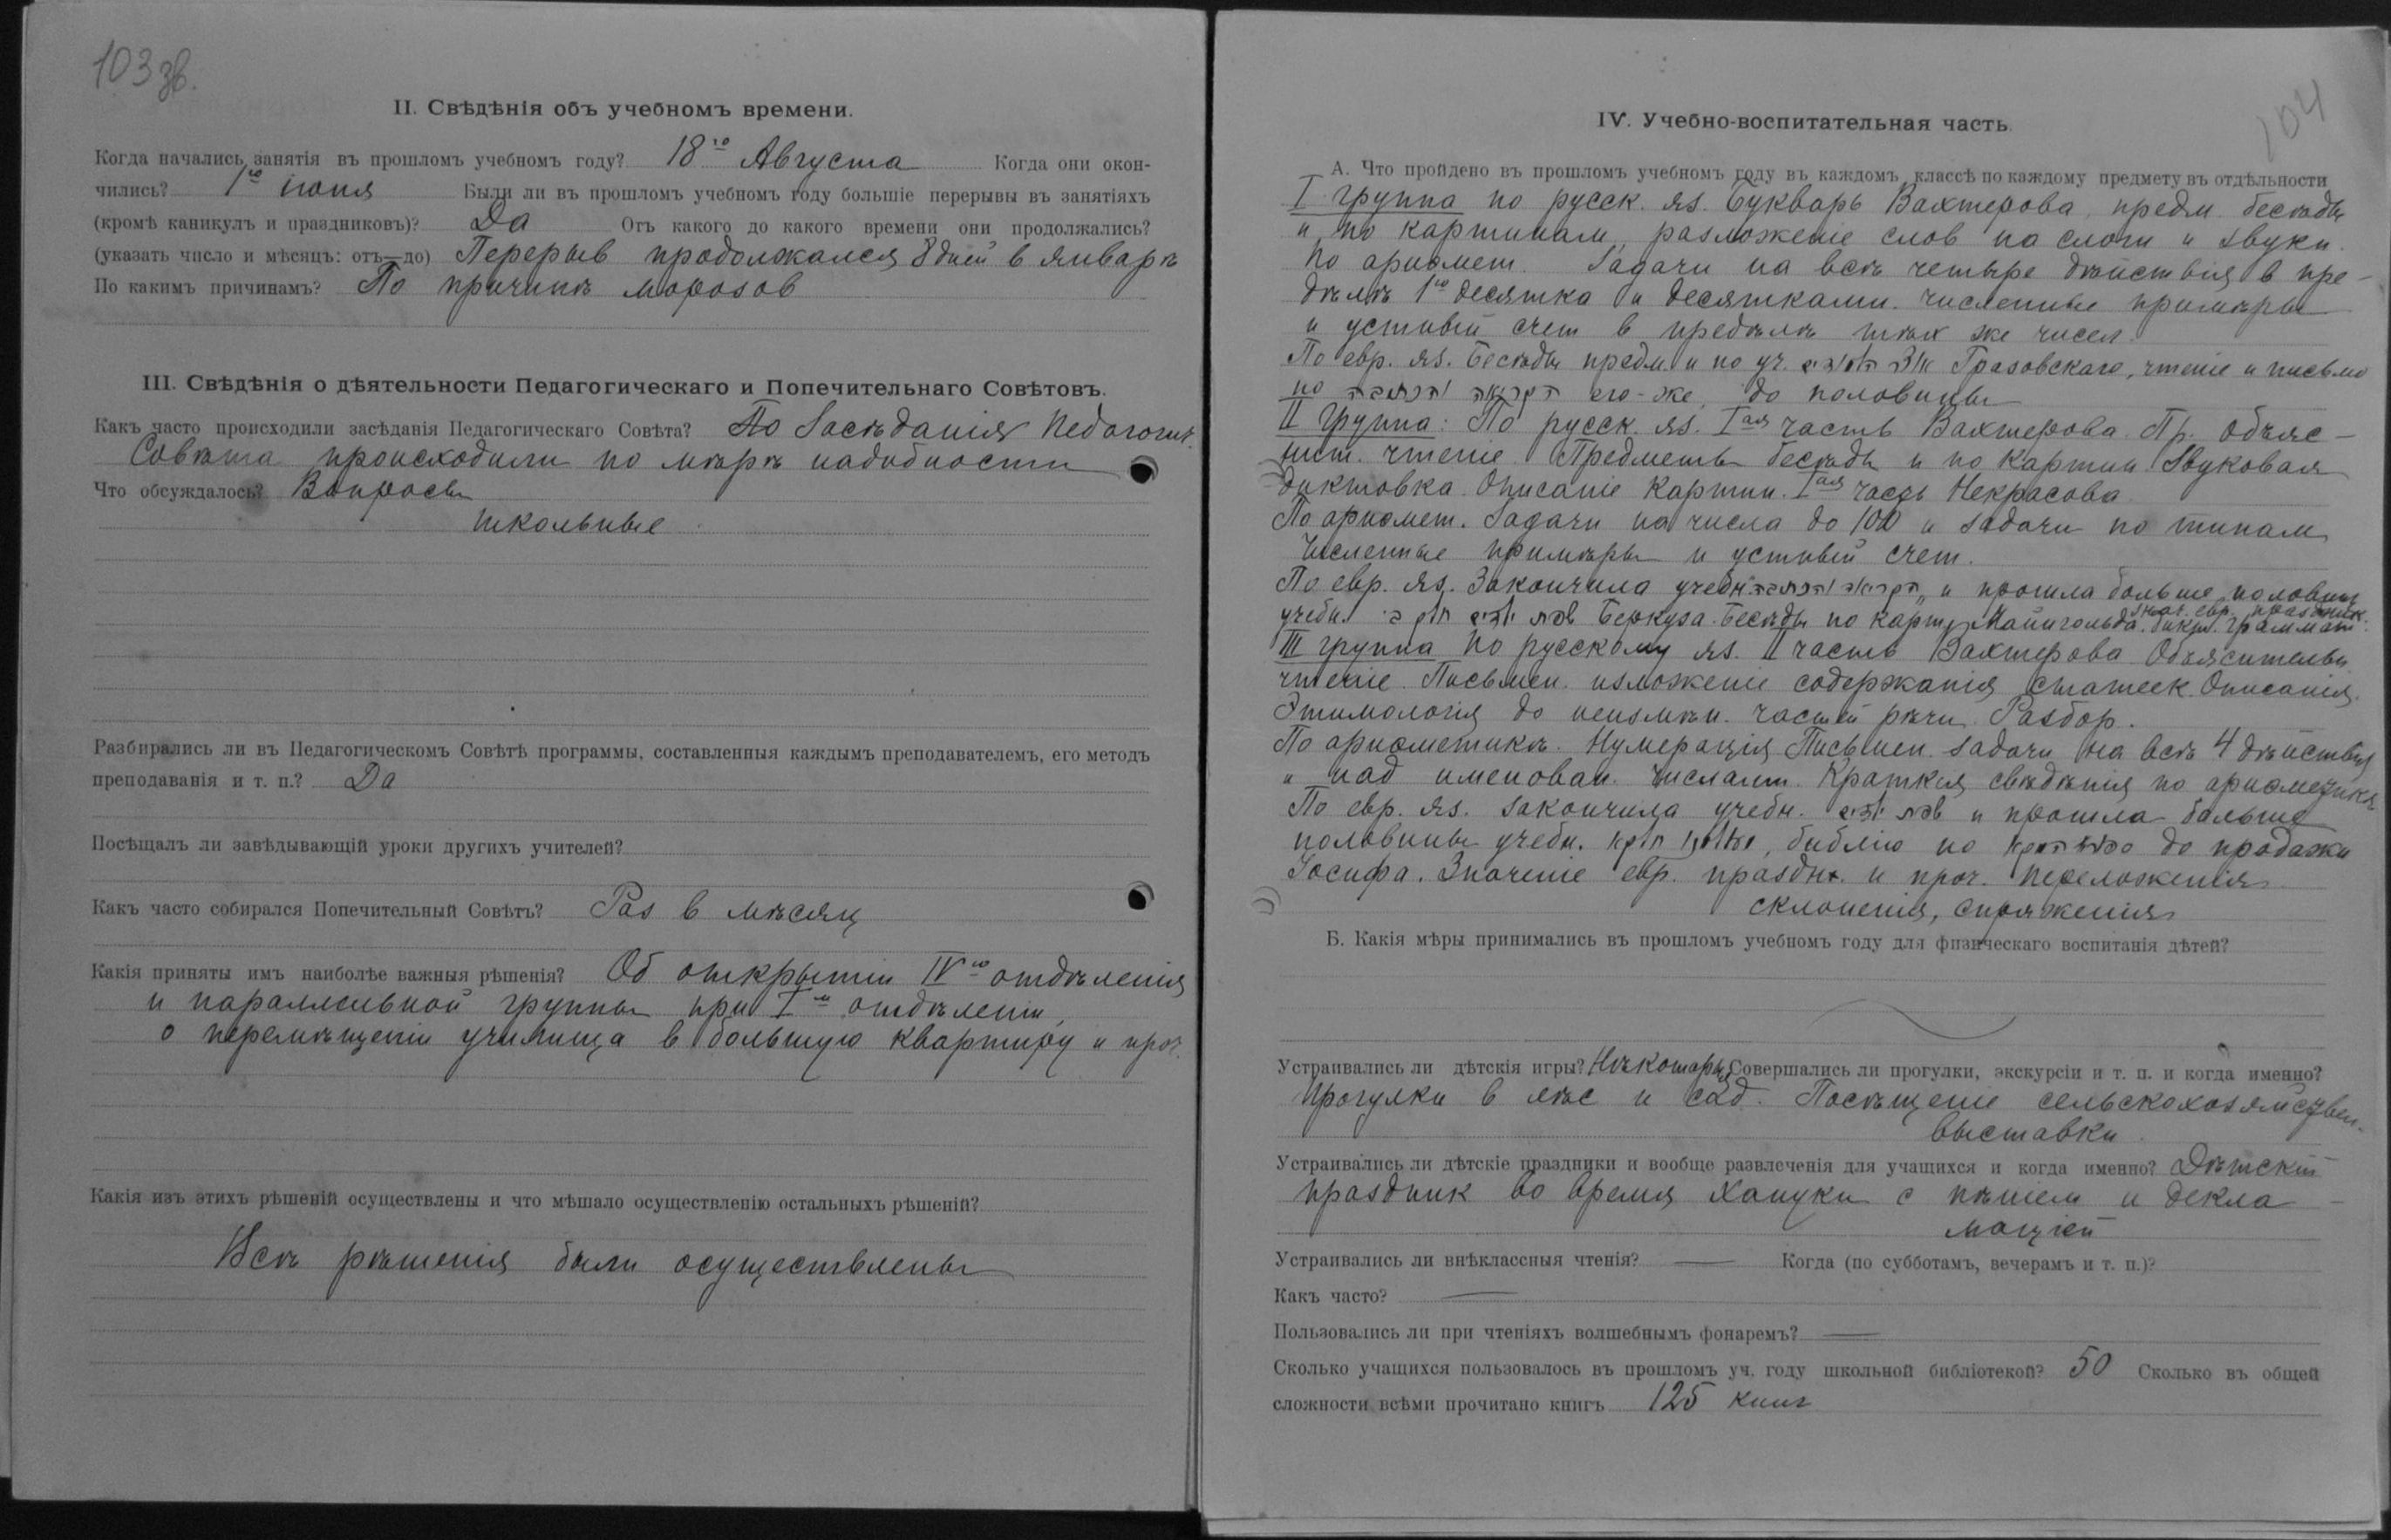 103 зв.
II. Свѣдѣнія объ учебномъ времени.
Когда начались занятія въ прошломъ учебномъ году? 18го Августа Когда они окон-
чились? 1го іюня Были ли въ прошломъ учебномъ году большіе перерывы въ занятіяхъ
(кромѣ каникулъ и праздниковъ)? Да Отъ какого до какого времени они продолжались?
(указать число и мѣсяцъ: отъ—до) Перерыв продолжался 8 дней в январѣ
По какимъ причинамъ? По причинѣ морозов
III. Свѣдѣнія о дѣятельности Педагогическаго и Попечительнаго Совѣтовъ.
Какъ часто происходили засѣданія Педагогическаго Совѣта? Засѣданія Педагогич.
Совѣта происходили по мѣрѣ надобности
Что обсуждалось? Вопросы
школьные
Разбирались ли въ Педагогическомъ Совѣтѣ программы, составленныя каждымъ преподавателемъ, его методъ
преподаванія и т. п.? Да
Посѣщалъ ли завѣдывающій уроки другихъ учителей?
Какъ часто собирался Попечительный Совѣтъ? Раз в мѣсяц
Какія приняты имъ наиболѣе важныя рѣшенія? Об открытіи IVго отдѣленія
и параллельной группы при Iм отдѣленіи,
о перемѣщеніи училища в большую квартиру и проч.
Какія изъ этихъ рѣшеній осуществлены и что мѣшало осуществленію остальныхъ рѣшеній?
Всѣ рѣшенія были осуществлены
104
IV. Учебно-воспитательная часть
А. Что пройдено въ прошломъ учебномъ году въ каждомъ классѣ по каждому предмету въ отдѣльности
I группа по русск. яз. Букварь Вахтерова, предм. бесѣды
и по картинам, разложеніе слов на слоги и звуки.
По ариѳмет. Задачи на всѣ четыре дѣйствія в пре-
дѣлѣ 1го десятка и десятками. численные примѣры
и устный счет в предѣлѣ тѣх же чисел.
По евр. яз. Бесѣды предм. и по уч. Гразовскаго, чтеніе и письмо
по его-же, до половины
II Группа: По русск. яз. Iая часть Вахтерова. Пр. Объяс-
нит. чтеніе. Предметы бесѣды и по картин. Звуковая
диктовка. Описаніе картин. Iая часть Некрасова
По ариѳмет. Задачи на числа до 100 и задачи по типам
Численные примѣры и устный счет.
По евр. яз. Закончила учебн. и прошла больше половины
учебн. Беркуза. Бесѣды по карт. граммат.
III группа По русскому яз. II часть Вахтерова Объяснительн.
чтеніе. Письмен. изложеніе содержанія статеек. Описанія.
Этимологія до неизмѣн. частей рѣчи. Разбор.
По ариѳметикѣ. Нумерація Письмен. задачи на всѣ 4 дѣйствія
и над именован. числами. Краткія свѣдѣнія по ариѳметикѣ
По евр. яз. закончила учебн. и прошла больше
половины учебн. , библію по до продажи
Іосифа. Значеніе евр. праздн. и проч. переложенія
склоненія, спряженія
Б. Какія мѣры принимались въ прошломъ учебномъ году для физическаго воспитанія дѣтей?
Устраивались ли дѣтскія игры? Нѣкоторыя Совершались ли прогулки, экскурсіи и т. п. и когда именно?
Прогулки в лѣс и сад. Посѣщеніе сельскохозяйствен-
выставки.
Устраивались ли дѣтскіе праздники и вообще развлеченія для учащихся и когда именно? Дѣтскій
праздник во время Хануки с пѣніем и декла-
маціей
Устраивались ли внѣклассныя чтенія? — Когда (по субботамъ, вечерамъ и т. п.)?
Какъ часто? —
Пользовались ли при чтеніяхъ волшебнымъ фонаремъ? —
Сколько учащихся пользовалось въ прошломъ уч. году школьной библіотекой? 50 Сколько въ общей
сложности всѣми прочитано книгъ 125 книг